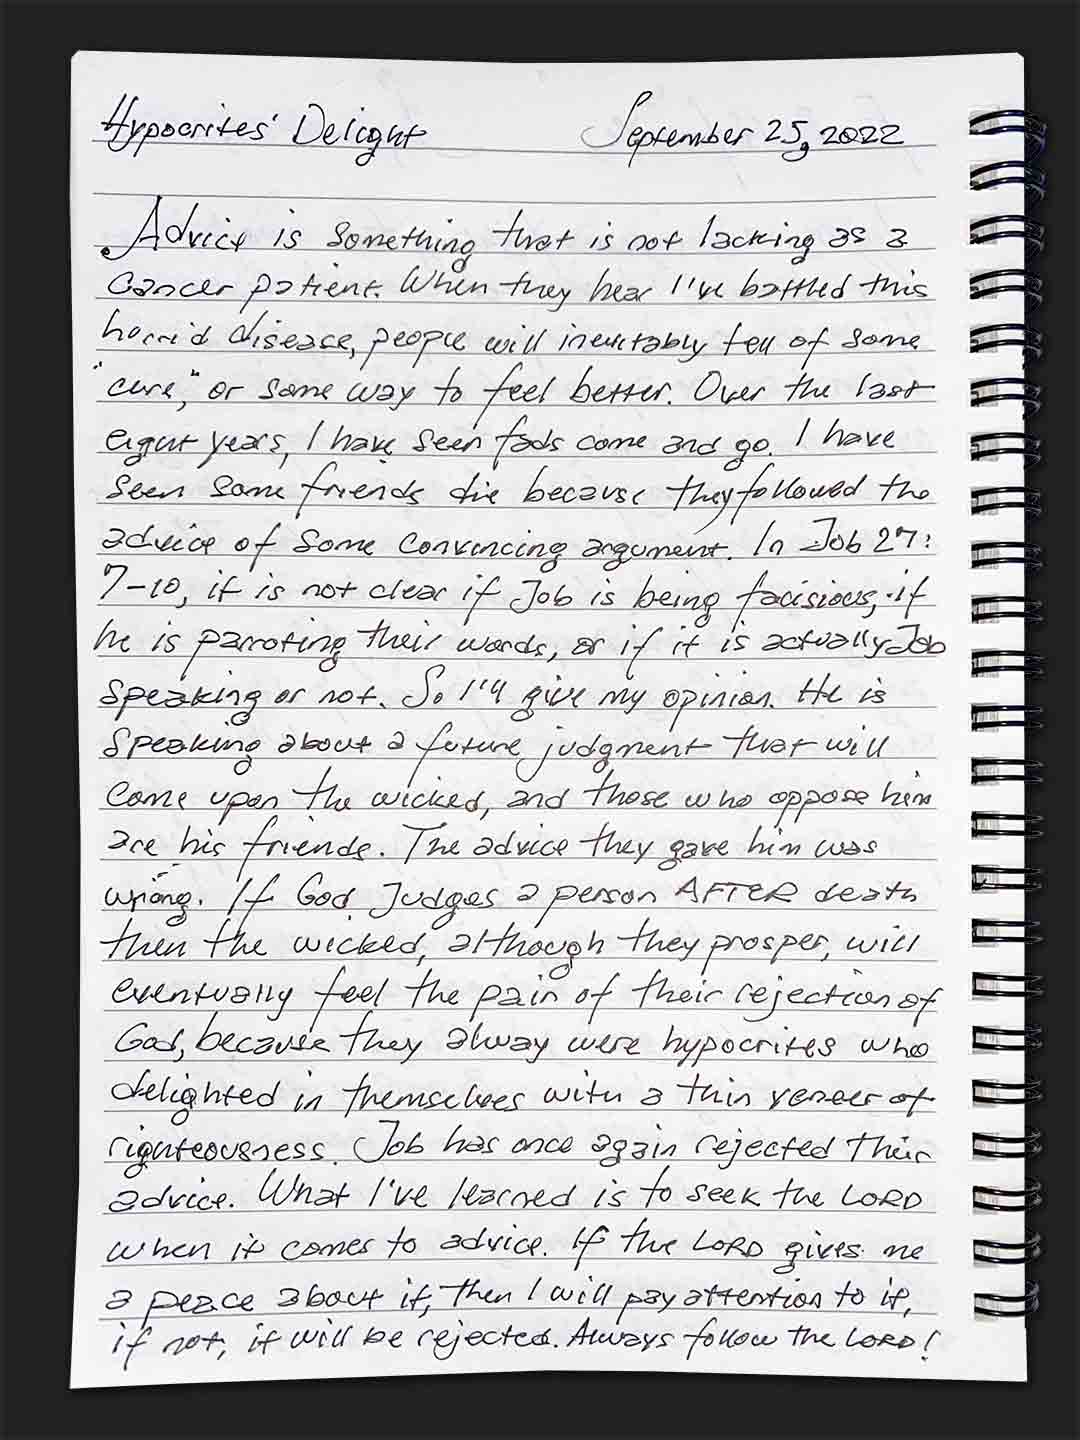 Hypocrites' Delight September 25, 2022
Advice is something that is not lacking as a
cancer patient. When they hear I've battled this
horrid disease, people will inevitably tell of some
"cure," or some way to feel better. Over the last
eight years, I have seen fads come and go. I have
seen some friends die because they followed the
advice of some convincing argument. In Job 27:
7-10, it is not clear if Job is being facisious, if
he is parroting their words, or if it is actually Job
speaking or not. So I'll give my opinion. He is
speaking about a future judgment that will
come upon the wicked, and those who oppose him
are his friends. The advice they gave him was
wrong. If God Judges a person AFTER death
then the wicked, although they prosper, will
eventually feel the pain of their rejection of
God, because they alway were hypocrites who
delighted in themselves with a thin veneer of
righteousness. Job has once again rejected their
advice. What I've learned is to seek the LORD
when it comes to advice. If the LORD gives me
a peace about it, then I will pay attention to it,
if not, it will be rejected. Always follow the LORD!